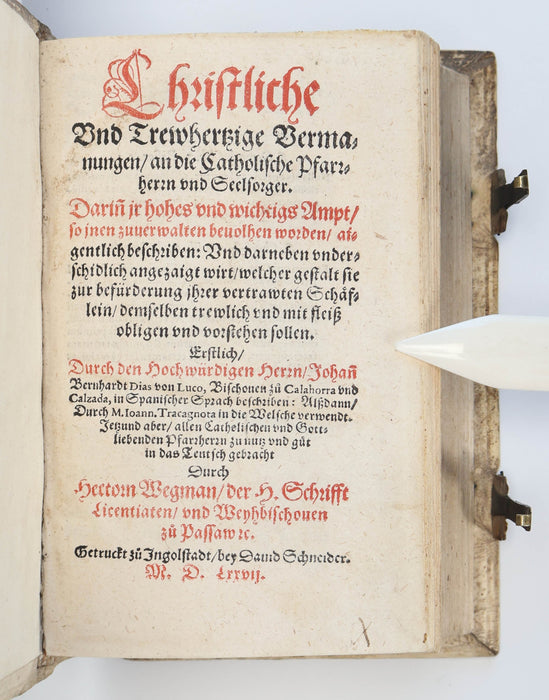 Christliche
Vnd Trewhertzige Verma-
nungen/ an die Catholische Pfarr-
herrn vnd Seelsorger.
Dariñ jr hohes vnd wichtigs Ampt/
so jnen zuuerwalten beuolhen worden/ ai-
gentlich beschriben: Vnd darneben vnder-
schidlich angezaigt wirt/ welcher gestalt sie
zur befürderung jhrer vertrawten Schäf-
lein/ demselben trewlich vnd mit fleiß
obligen vnd vorstehen sollen.
Erstlich/
Durch den Hochwürdigen Herrn/ Johañ
Bernhardt Dias von Luco, Bischouen zů Calahorra vnd
Calzada, in Spanischer Sprach beschriben: Alßdann/
Durch M. Ioann. Tracagnota in die Welsche verwendt.
Jetzund aber/ allen Catholischen vnd Gott-
liebenden Pfarrherrn zu nutz vnd gůt
in das Teutsch gebracht
Durch
Hectorn Wegman/ der H. Schrifft
Licentiaten/ vnd Weyhbischouen
zů Passaw ꝛc.
Getruckt zů Ingolstadt/ bey Dauid Schneider.
M. D. Lxxvij.